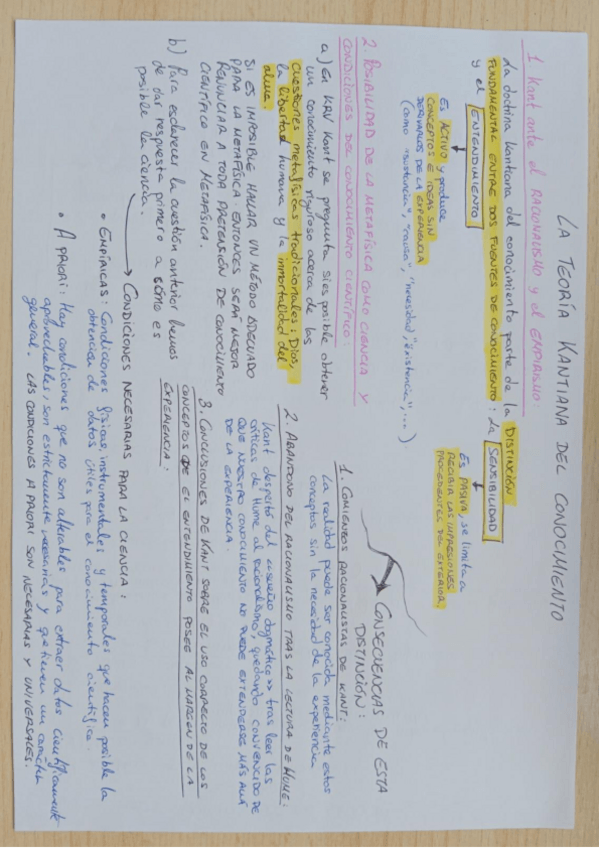 LA TEORÍA KANTIANA DEL CONOCIMIENTO
1. Kant ante el RACIONALISMO y el EMPIRISMO:
La doctrina kantiana del conocimiento parte de la DISTINCIÓN
FUNDAMENTAL ENTRE DOS FUENTES DE CONOCIMIENTO: la SENSIBILIDAD
y el ENTENDIMIENTO
ES PASIVA, se limita a
RECIBIR LAS IMPRESIONES
PROCEDENTES DEL EXTERIOR.
ES ACTIVO y produce
CONCEPTOS E IDEAS SIN
DERIVARLOS DE LA EXPERIENCIA
(como "sustancia", "causa", "necesidad", "existencia",...)
CONSECUENCIAS DE ESTA
DISTINCIÓN:
1. COMIENZOS RACIONALISTAS DE KANT:
La realidad puede ser conocida mediante estos
conceptos sin la necesidad de la experiencia
2. ABANDONO DEL RACIONALISMO TRAS LA LECTURA DE HUME:
Kant despertó del «sueño dogmático» tras leer las
críticas de Hume al racionalismo, quedando convencido de
QUE NUESTRO CONOCIMIENTO NO PUEDE EXTENDERSE MÁS ALLÁ
DE LA EXPERIENCIA.
3. CONCLUSIONES DE KANT SOBRE EL USO CORRECTO DE LOS
CONCEPTOS QUE EL ENTENDIMIENTO POSEE AL MARGEN DE LA
EXPERIENCIA:
2. POSIBILIDAD DE LA METAFÍSICA COMO CIENCIA Y
CONDICIONES DEL CONOCIMIENTO CIENTÍFICO:
a) En KRV Kant se pregunta si es posible obtener
un conocimiento riguroso acerca de las
cuestiones metafísicas tradicionales: Dios,
la libertad humana y la inmortalidad del
alma.
SI ES IMPOSIBLE HALLAR UN MÉTODO ADECUADO
PARA LA METAFÍSICA ENTONCES SERÁ MEJOR
RENUNCIAR A TODA PRETENSIÓN DE CONOCIMIENTO
CIENTÍFICO EN METAFÍSICA.
b) Para esclarecer la cuestión anterior hemos
de dar respuesta primero a cómo es
posible la ciencia.
CONDICIONES NECESARIAS PARA LA CIENCIA:
• EMPÍRICAS: Condiciones físicas, instrumentales y temporales que hacen posible la
obtención de datos útiles para el conocimiento científico.
• A PRIORI: Hay condiciones que no son alterables para extraer datos científicamente
aprovechables, son estrictamente necesarias y que tienen un carácter
general. LAS CONDICIONES A PRIORI SON NECESARIAS Y UNIVERSALES.